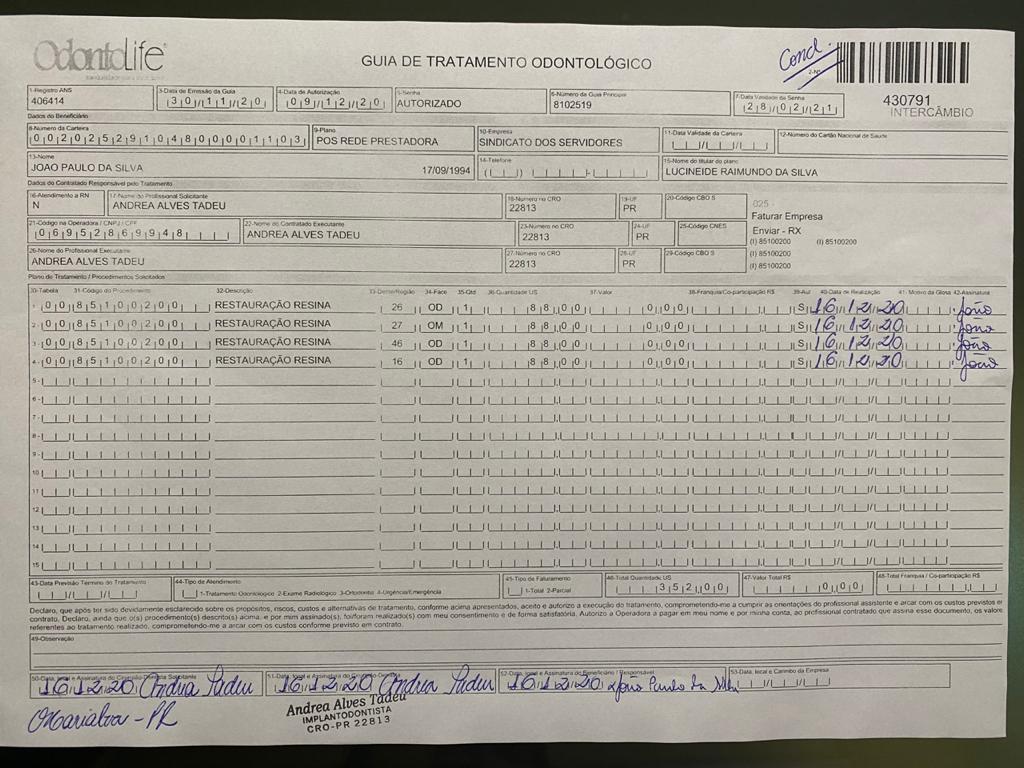 OdontoLife
GUIA DE TRATAMENTO ODONTOLÓGICO
Concl.
2-Nº
430791
INTERCÂMBIO
1-Registro ANS
406414
3-Data de Emissão da Guia
30/11/20
4-Data de Autorização
09/12/20
5-Senha
AUTORIZADO
6-Número da Guia Principal
8102519
7-Data Validade da Senha
28/02/21
Dados do Beneficiário
8-Número da Carteira
00202529104800001103
9-Plano
POS REDE PRESTADORA
10-Empresa
SINDICATO DOS SERVIDORES
11-Data Validade da Carteira
12-Número do Cartão Nacional de Saúde
13-Nome
JOAO PAULO DA SILVA 17/09/1994
14-Telefone
15-Nome do titular do plano
LUCINEIDE RAIMUNDO DA SILVA
Dados do Contratado Responsável pelo Tratamento
16-Atendimento a RN
N
17-Nome do Profissional Solicitante
ANDREA ALVES TADEU
18-Número no CRO
22813
19-UF
PR
20-Código CBO S
025 -
Faturar Empresa
Enviar - RX
(I) 85100200 (I) 85100200
(I) 85100200
(I) 85100200
21-Código na Operadora / CNPJ / CPF
06952869948
22-Nome do Contratado Executante
ANDREA ALVES TADEU
23-Número no CRO
22813
24-UF
PR
25-Código CNES
26-Nome do Profissional Executante
ANDREA ALVES TADEU
27-Número no CRO
22813
28-UF
PR
29-Código CBO S
Plano de Tratamento / Procedimentos Solicitados
30-Tabela 31-Código do Procedimento 32-Descrição 33-Dente/Região 34-Face 35-Qtd 36-Quantidade US 37-Valor 38-Franquia/Co-participação R$ 39-Aut 40-Data de Realização 41- Motivo da Glosa 42-Assinatura
1- 00 85100200 RESTAURAÇÃO RESINA 26 OD 1 88,00 0,00 S 16/12/20 João
2- 00 85100200 RESTAURAÇÃO RESINA 27 OM 1 88,00 0,00 S 16/12/20 João
3- 00 85100200 RESTAURAÇÃO RESINA 46 OD 1 88,00 0,00 S 16/12/20 João
4- 00 85100200 RESTAURAÇÃO RESINA 16 OD 1 88,00 0,00 S 16/12/20 João
5-
6-
7-
8-
9-
10-
11-
12-
13-
14-
15-
43-Data Previsão Término do Tratamento
44-Tipo de Atendimento
1-Tratamento Odontológico 2-Exame Radiológico 3-Ortodontia 4-Urgência/Emergência
45-Tipo de Faturamento
1-Total 2-Parcial
46-Total Quantidade US
352,00
47-Valor Total R$
0,00
48-Total Franquia / Co-participação R$
Declaro, que após ter sido devidamente esclarecido sobre os propósitos, riscos, custos e alternativas de tratamento, conforme acima apresentados, aceito e autorizo a execução do tratamento, comprometendo-me a cumprir as orientações do profissional assistente e arcar com os custos previstos em
contrato. Declaro, ainda que o(s) procedimento(s) descrito(s) acima, e por mim assinado(s), foi/foram realizado(s) com meu consentimento e de forma satisfatória. Autorizo a Operadora a pagar em meu nome e por minha conta, ao profissional contratado que assina esse documento, os valores
referentes ao tratamento realizado, comprometendo-me a arcar com os custos conforme previsto em contrato.
49-Observação
16/12/20 Andrea Tadeu
16/12/20 Andrea Tadeu
52-Data, local e Assinatura do Beneficiário / Responsável
16/12/20 João Paulo da Silva
53-Data, local e Carimbo da Empresa
Marialva - PR
Andrea Alves Tadeu
IMPLANTODONTISTA
CRO-PR 22813